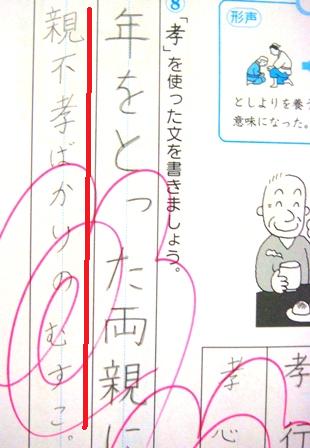 形声
としよりを養う
意味になった。
8「孝」を使った文を書きましょう。
年をとった両親に
親不孝ばかりのむすこ。
孝行
孝心